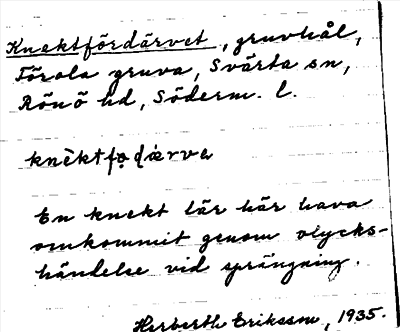 Knektfördärvet, gruvhål,
Förola gruva, Svärta sn,
Rönö hd, Söderm. l.
knèktfọḍǽrva
En knekt lär här hava
omkommit genom olycks-
händelse vid sprängning.
Herberth Eriksson, 1935.